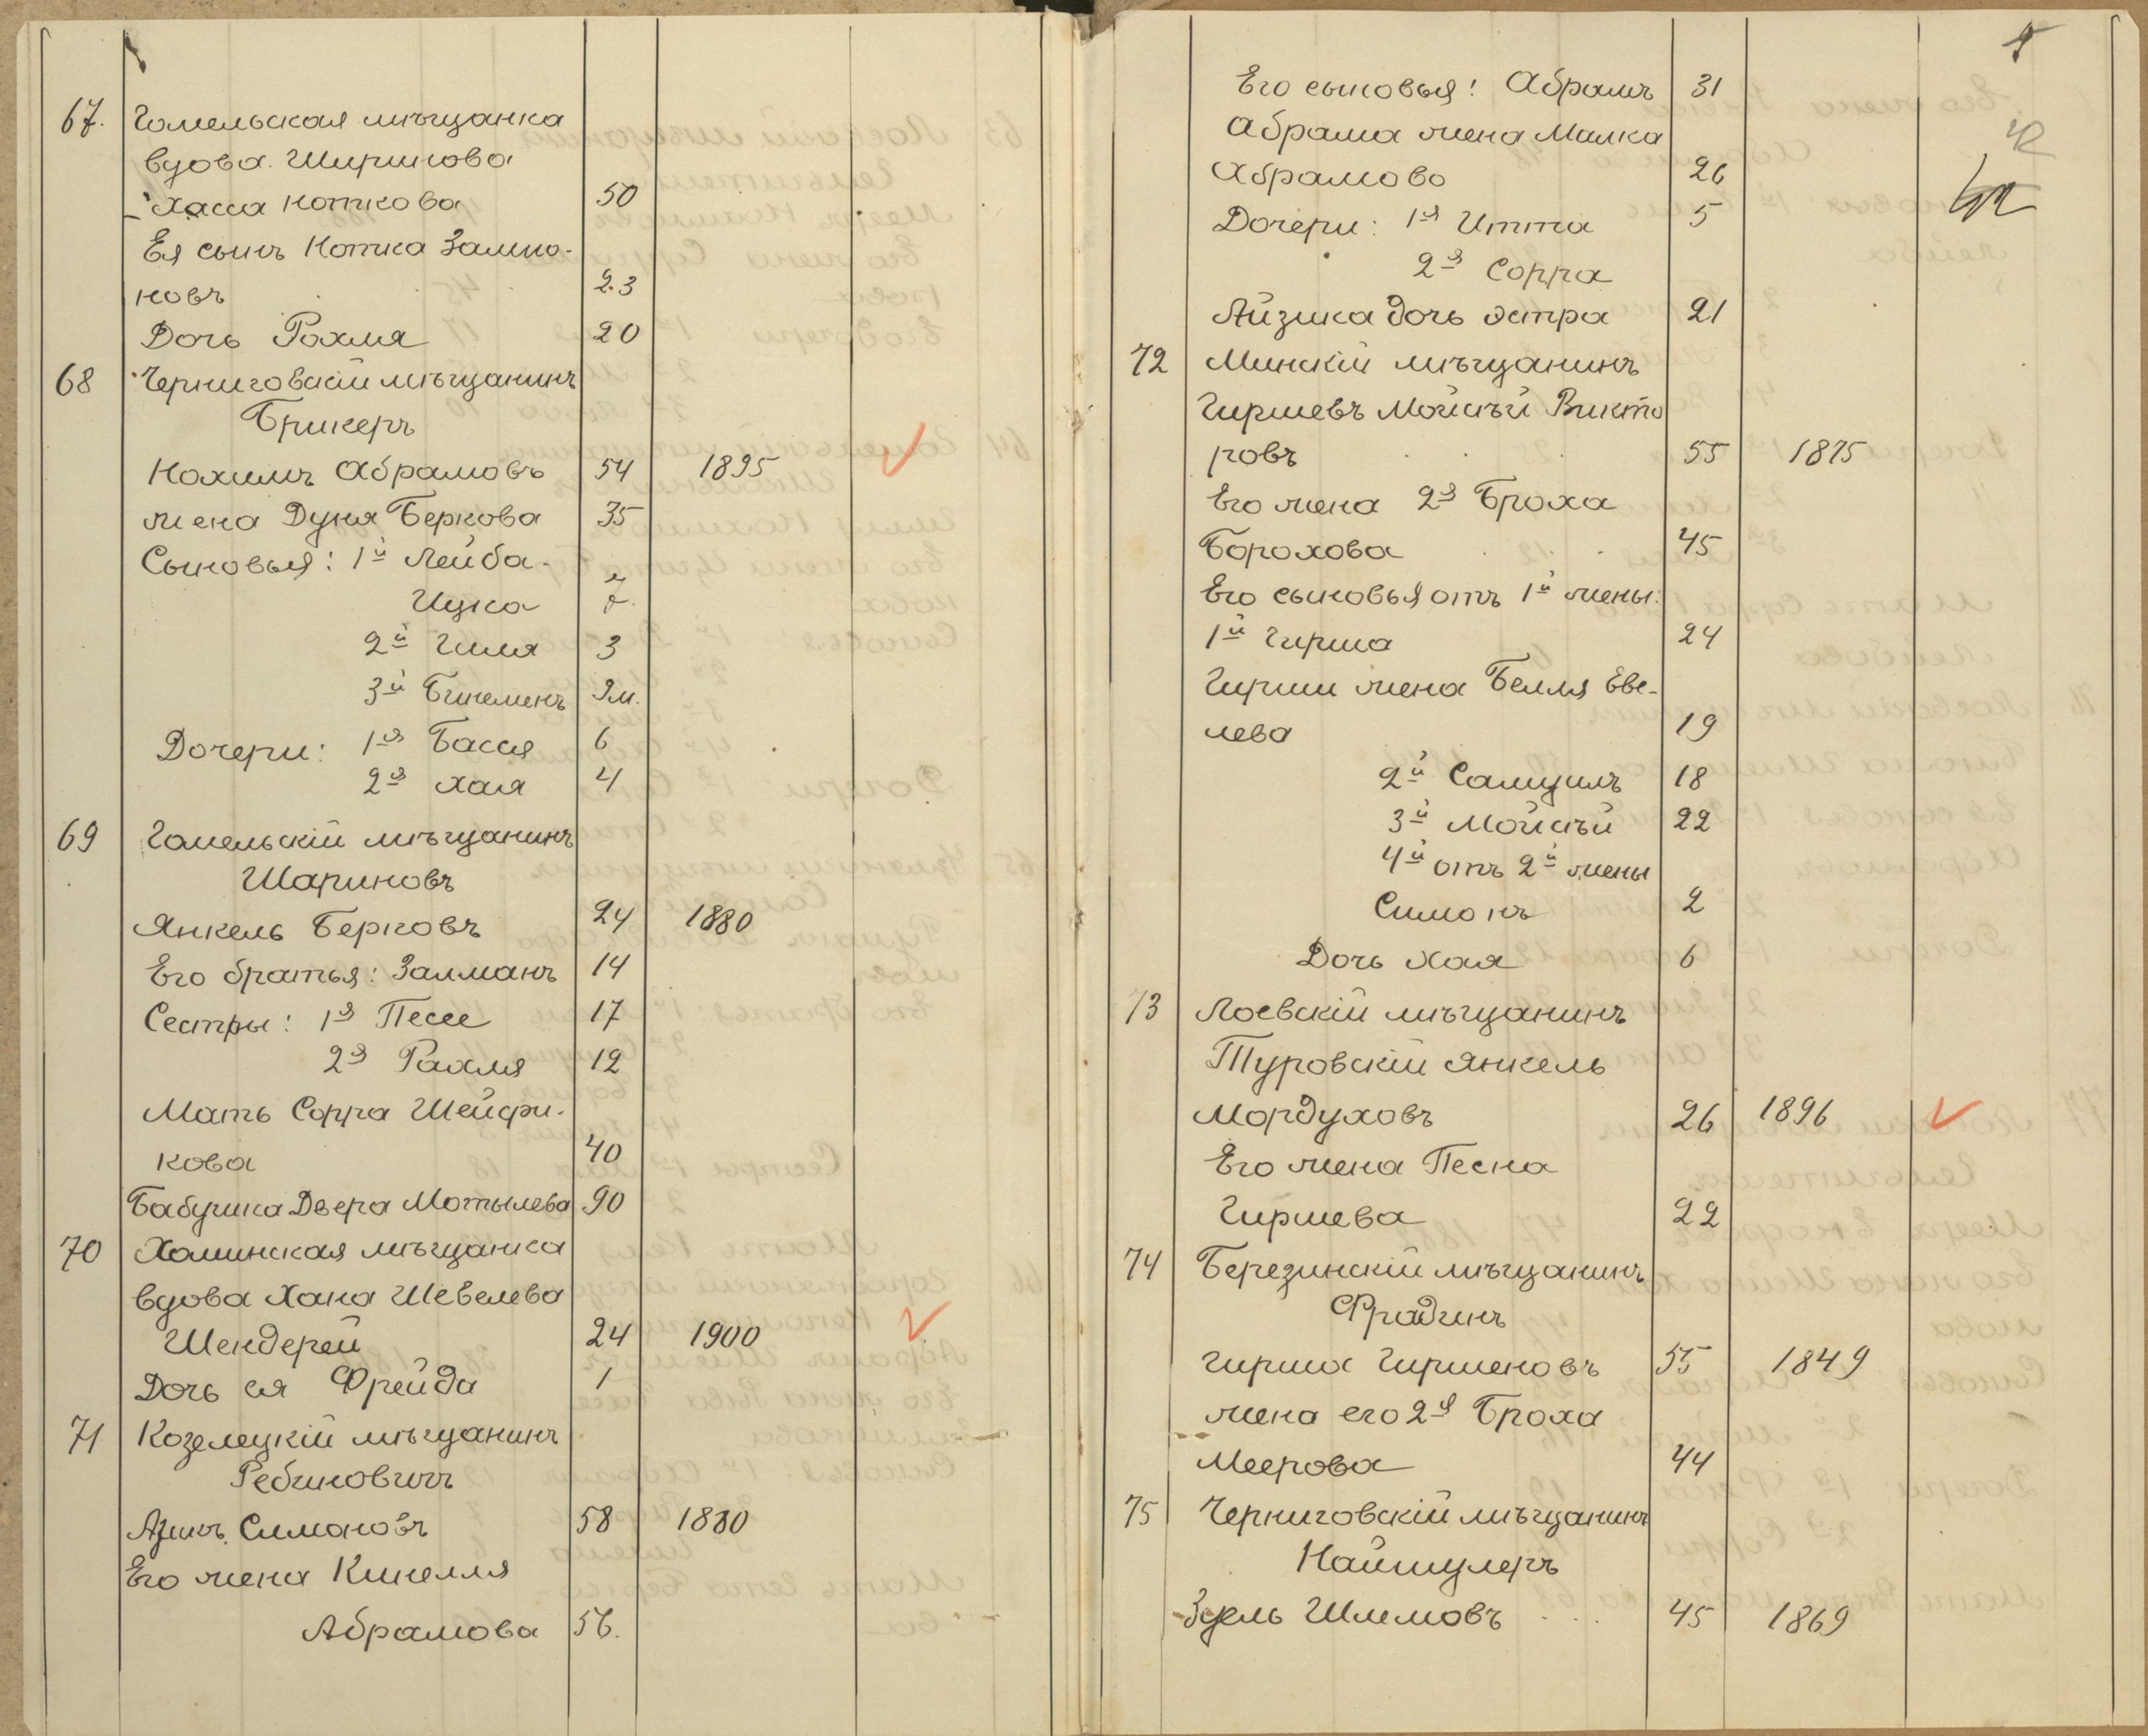 67. Гомельская мѣщанка
вдова Ширинова
Хася Ноткова 50
Ея сынъ Нотка Залма-
новъ 23
Дочь Рохля 20
68 Черниговскій мѣщанинъ
Брикеръ
Нохимъ Абрамовъ 54 1895
жена Дуня Беркова 35
Сыновья: 1й Лейба-
Ицка 7.
2й Гиля 3
3й Бинеминъ 9 м.
Дочери: 1я Бася 6
2я Хая 4
69 Гомельскій мѣщанинъ
Шариновъ
Янкель Берковъ 24 1880
Его братья: Залманъ 14
Сестры: 1я Песе 17
2я Рахля 12
Мать Сорра Шейфи-
кова 40
Бабушка Двера Мотылева 90
70 Холминская мѣщанка
вдова Хана Шевелева
Шендерей 24 1900
Дочь ея Фрейда 1
71 Козелецкій мѣщанинъ
Ребиновичъ
Азикъ Симоновъ 58 1880
Его жена Кинеля
Абрамова 56.
Его сыновья: Абрамъ 31
Абрама жена Малка
Абрамова 26
Дочери: 1я Итта 5
2я Сорра
Айзика дочь Эстра 21
72 Минскій мѣщанинъ
Гиршевъ Мойсѣй Викто
ровъ 55 1875
Его жена 2я Броха
Борохова 45
Его сыновья отъ 1й жены:
1й Гирша 24
Гирши жена Белля Еве-
лева 19
2й Самуилъ 18
3й Мойсѣй 22
4й отъ 2й жены
Симонъ 2
Дочь Хая 6
73 Лоевскій мѣщанинъ
Туровскій Янкель
Мордуховъ 26 1896
Его жена Песна
Гиршева 22
74 Березинскій мѣщанинъ
Фрадинъ
Гирша Гиршеновъ 55 1849
жена его 2я Броха
Меерова 44
75 Черниговскій мѣщанинъ
Наймулеръ
Зуель Шлемовъ 45 1869